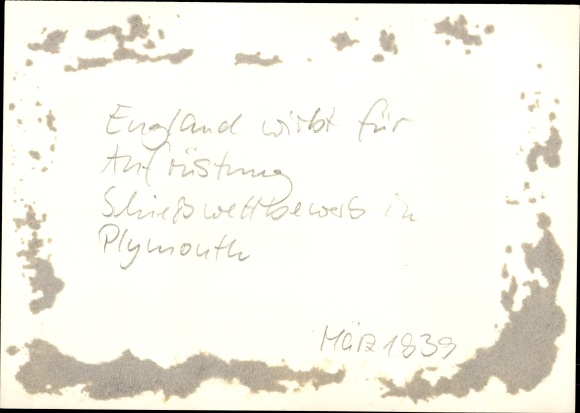 England wirbt für
Aufrüstung
Schießwettbewerb in
Plymouth
März 1939